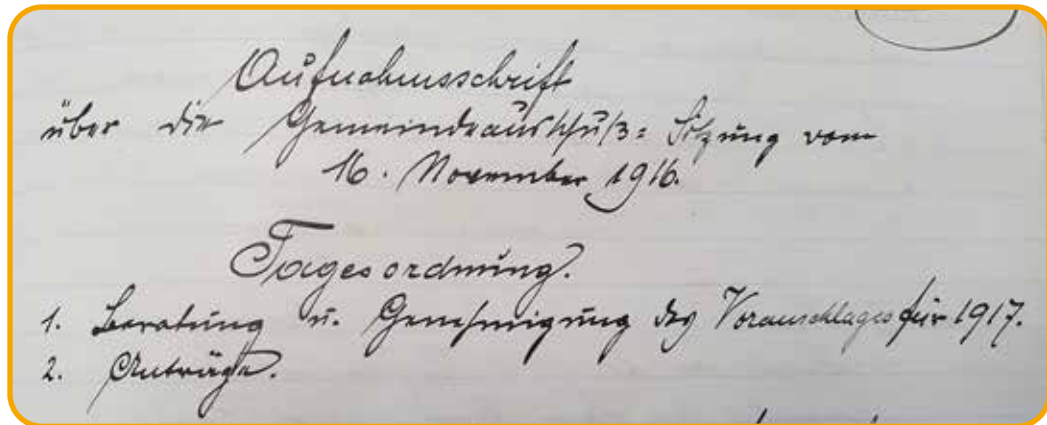 Aufnahmsschrift
über die Gemeindeausschuß= Sitzung vom
16. November 1916.
Tagesordnung.
1. Beratung u. Genehmigung des Voranschlages für 1917.
2. Anträge.